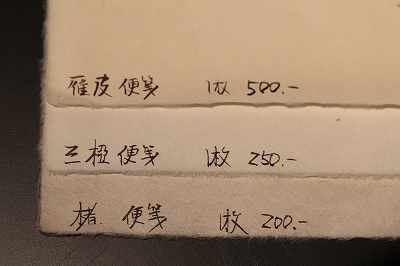 雁皮便箋 1枚 500.-
三椏便箋 1枚 250.-
楮 便箋 1枚 200.-